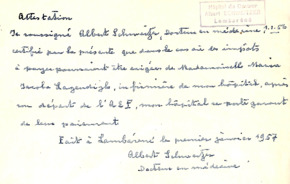 Attestation
Je soussigné Albert Schweitzer, Docteur en médecine,
certifie par la présente que dans le cas où les impôts
à payer pourraient être exigés de Mademoiselle Maria
Lagendijk, infirmière de mon hôpital, après
son départ de l'A.E.F., mon hôpital se porte garant
de leur paiement
Fait à Lambaréné le premier janvier 1957
Albert Schweitzer
Docteur en médecine